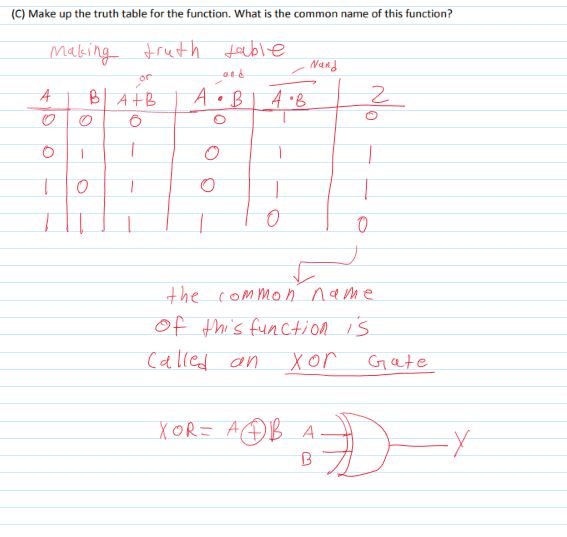 (C) Make up the truth table for the function. What is the common name of this function?
Making truth table
or and Nand
A B A+B A • B A̅ ̅•̅ ̅B̅ Z
0 0 0 0 1 0
0 1 1 0 1 1
1 0 1 0 1 1
1 1 1 1 0 0
the common name
of this function is
called an xor Gate
XOR = A⊕B A
B
X